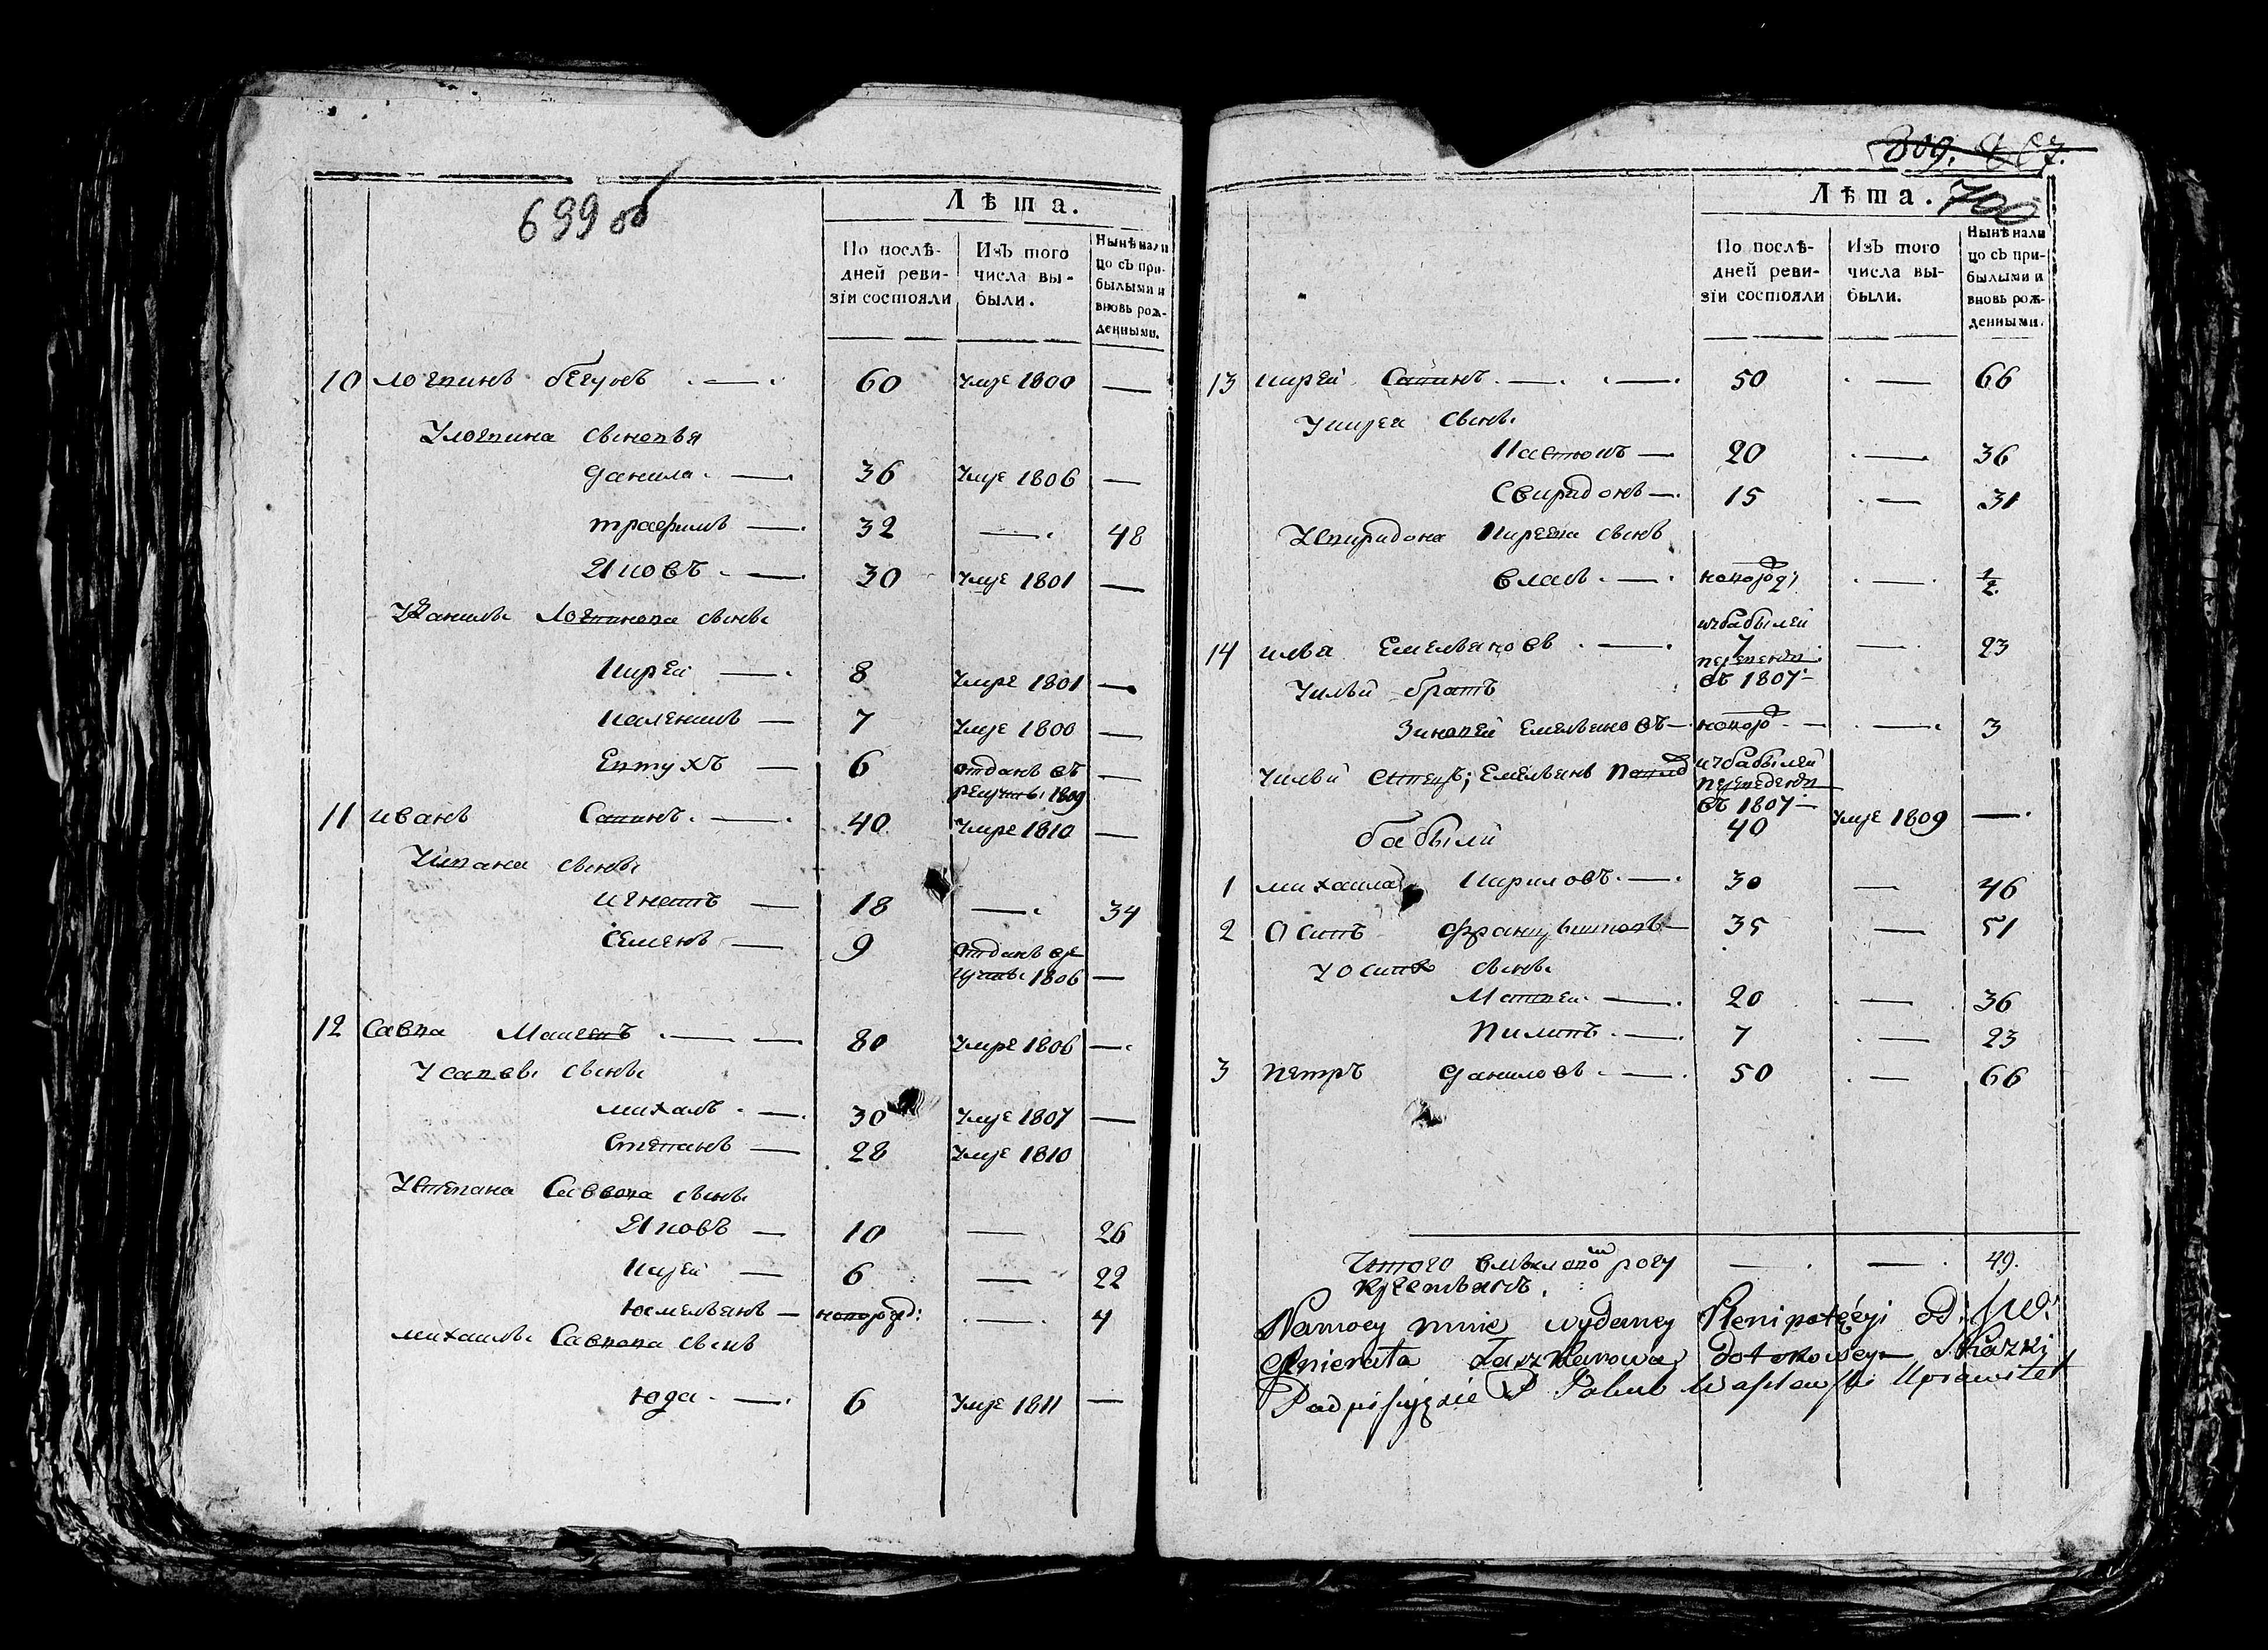 699 об
Лѣта.
По послѣ-
дней реви-
зіи состояли
Изъ того
числа вы-
были.
Нынѣ нали
цо съ при-
былыми и
вновь рож-
денными.
10 Логвинъ Бегунъ 60 Умре 1800 —
У Логвина сыновья
Данила 36 Умре 1806 —
Трафимъ 32 — 48
Яковъ 30 Умре 1801 —
У Данилы Логвинова сынъ
Кирей 8 Умре 1801 —
7 Умре 1800 —
Евтухъ 6 отданъ въ
рекруты 1809 —
11 Иванъ 40 Умре 1810 —
У Ивана сынъ
Игнатъ 18 — 34
Семенъ 9 отданъ вре
круты 1806 —
12 Савва 80 Умре 1806 —
У Саввы сынъ
Михалъ 30 Умре 1807 —
Степанъ 28 Умре 1810
У Степана Саввова сынъ
Яковъ 10 — 26
Кирей 6 — 22
Юмельянъ — новород: — 4
Михаилы Саввова сынъ
Юда 6 Умре 1811 —
309.
700
Лѣта.
По послѣ-
дней реви-
зіи состояли
Изъ того
числа вы-
были.
Нынѣ нали
цо съ при-
былыми и
вновь рож-
денными.
13 Кирей 50 — 66
У Кирея сынъ
20 — 36
Свиридонъ 15 — 31
У Спиридона Кирева сынъ
Власъ новород: — 1/2
14 Илья Емельяновъ из бабылей
7
переведен
въ 1807 — 23
У Ильи братъ
Зиновей Емельяновъ новоро — 3
У Ильи отецъ, Емельянъ из бабылей
переведен
въ 1807
40 Умре 1809 —
бабыли
1 Михаила Кириловъ 30 — 46
2 Осипъ 35 — 51
У Осипа сынъ
Матвей 20 — 36
Пилипъ 7 — 23
3 Петръ Даниловъ 50 — 66
Итого роду — — 49.
крестьянъ.
Namocy mnie wydaney Plenipotęcyi od
do Skazki
Podpisuię sie Jakub